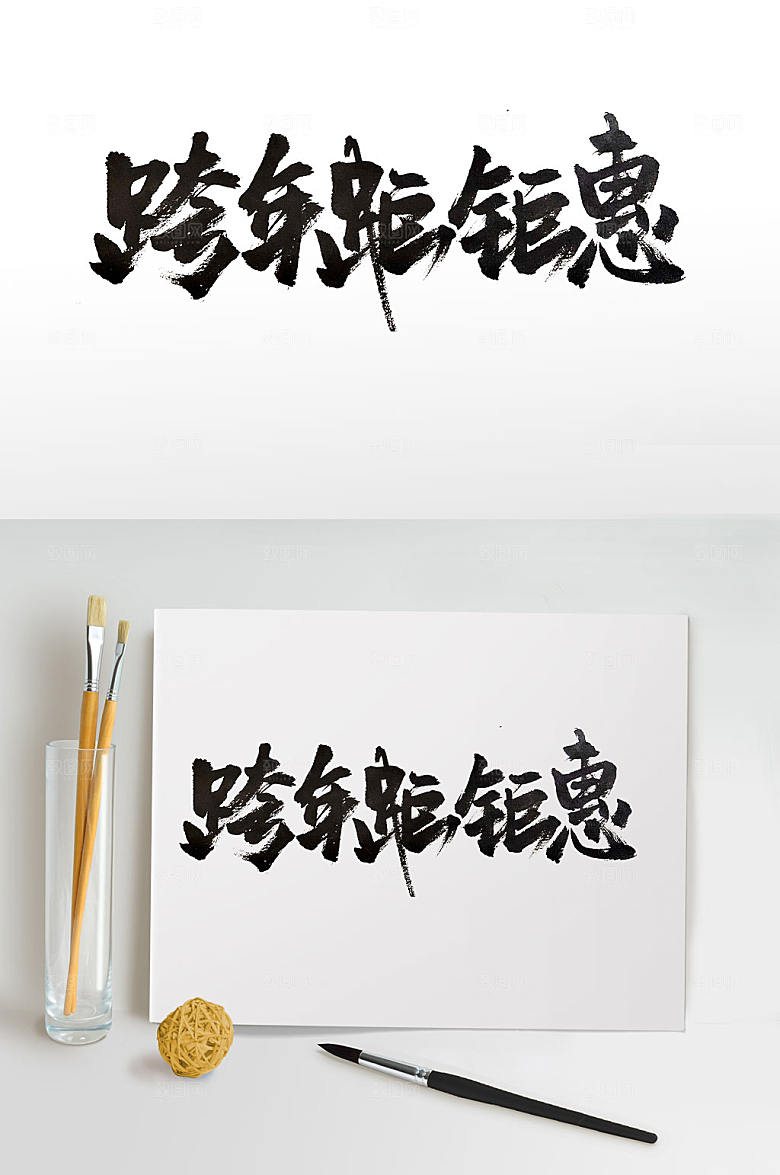 跨年距钜惠
跨年距钜惠